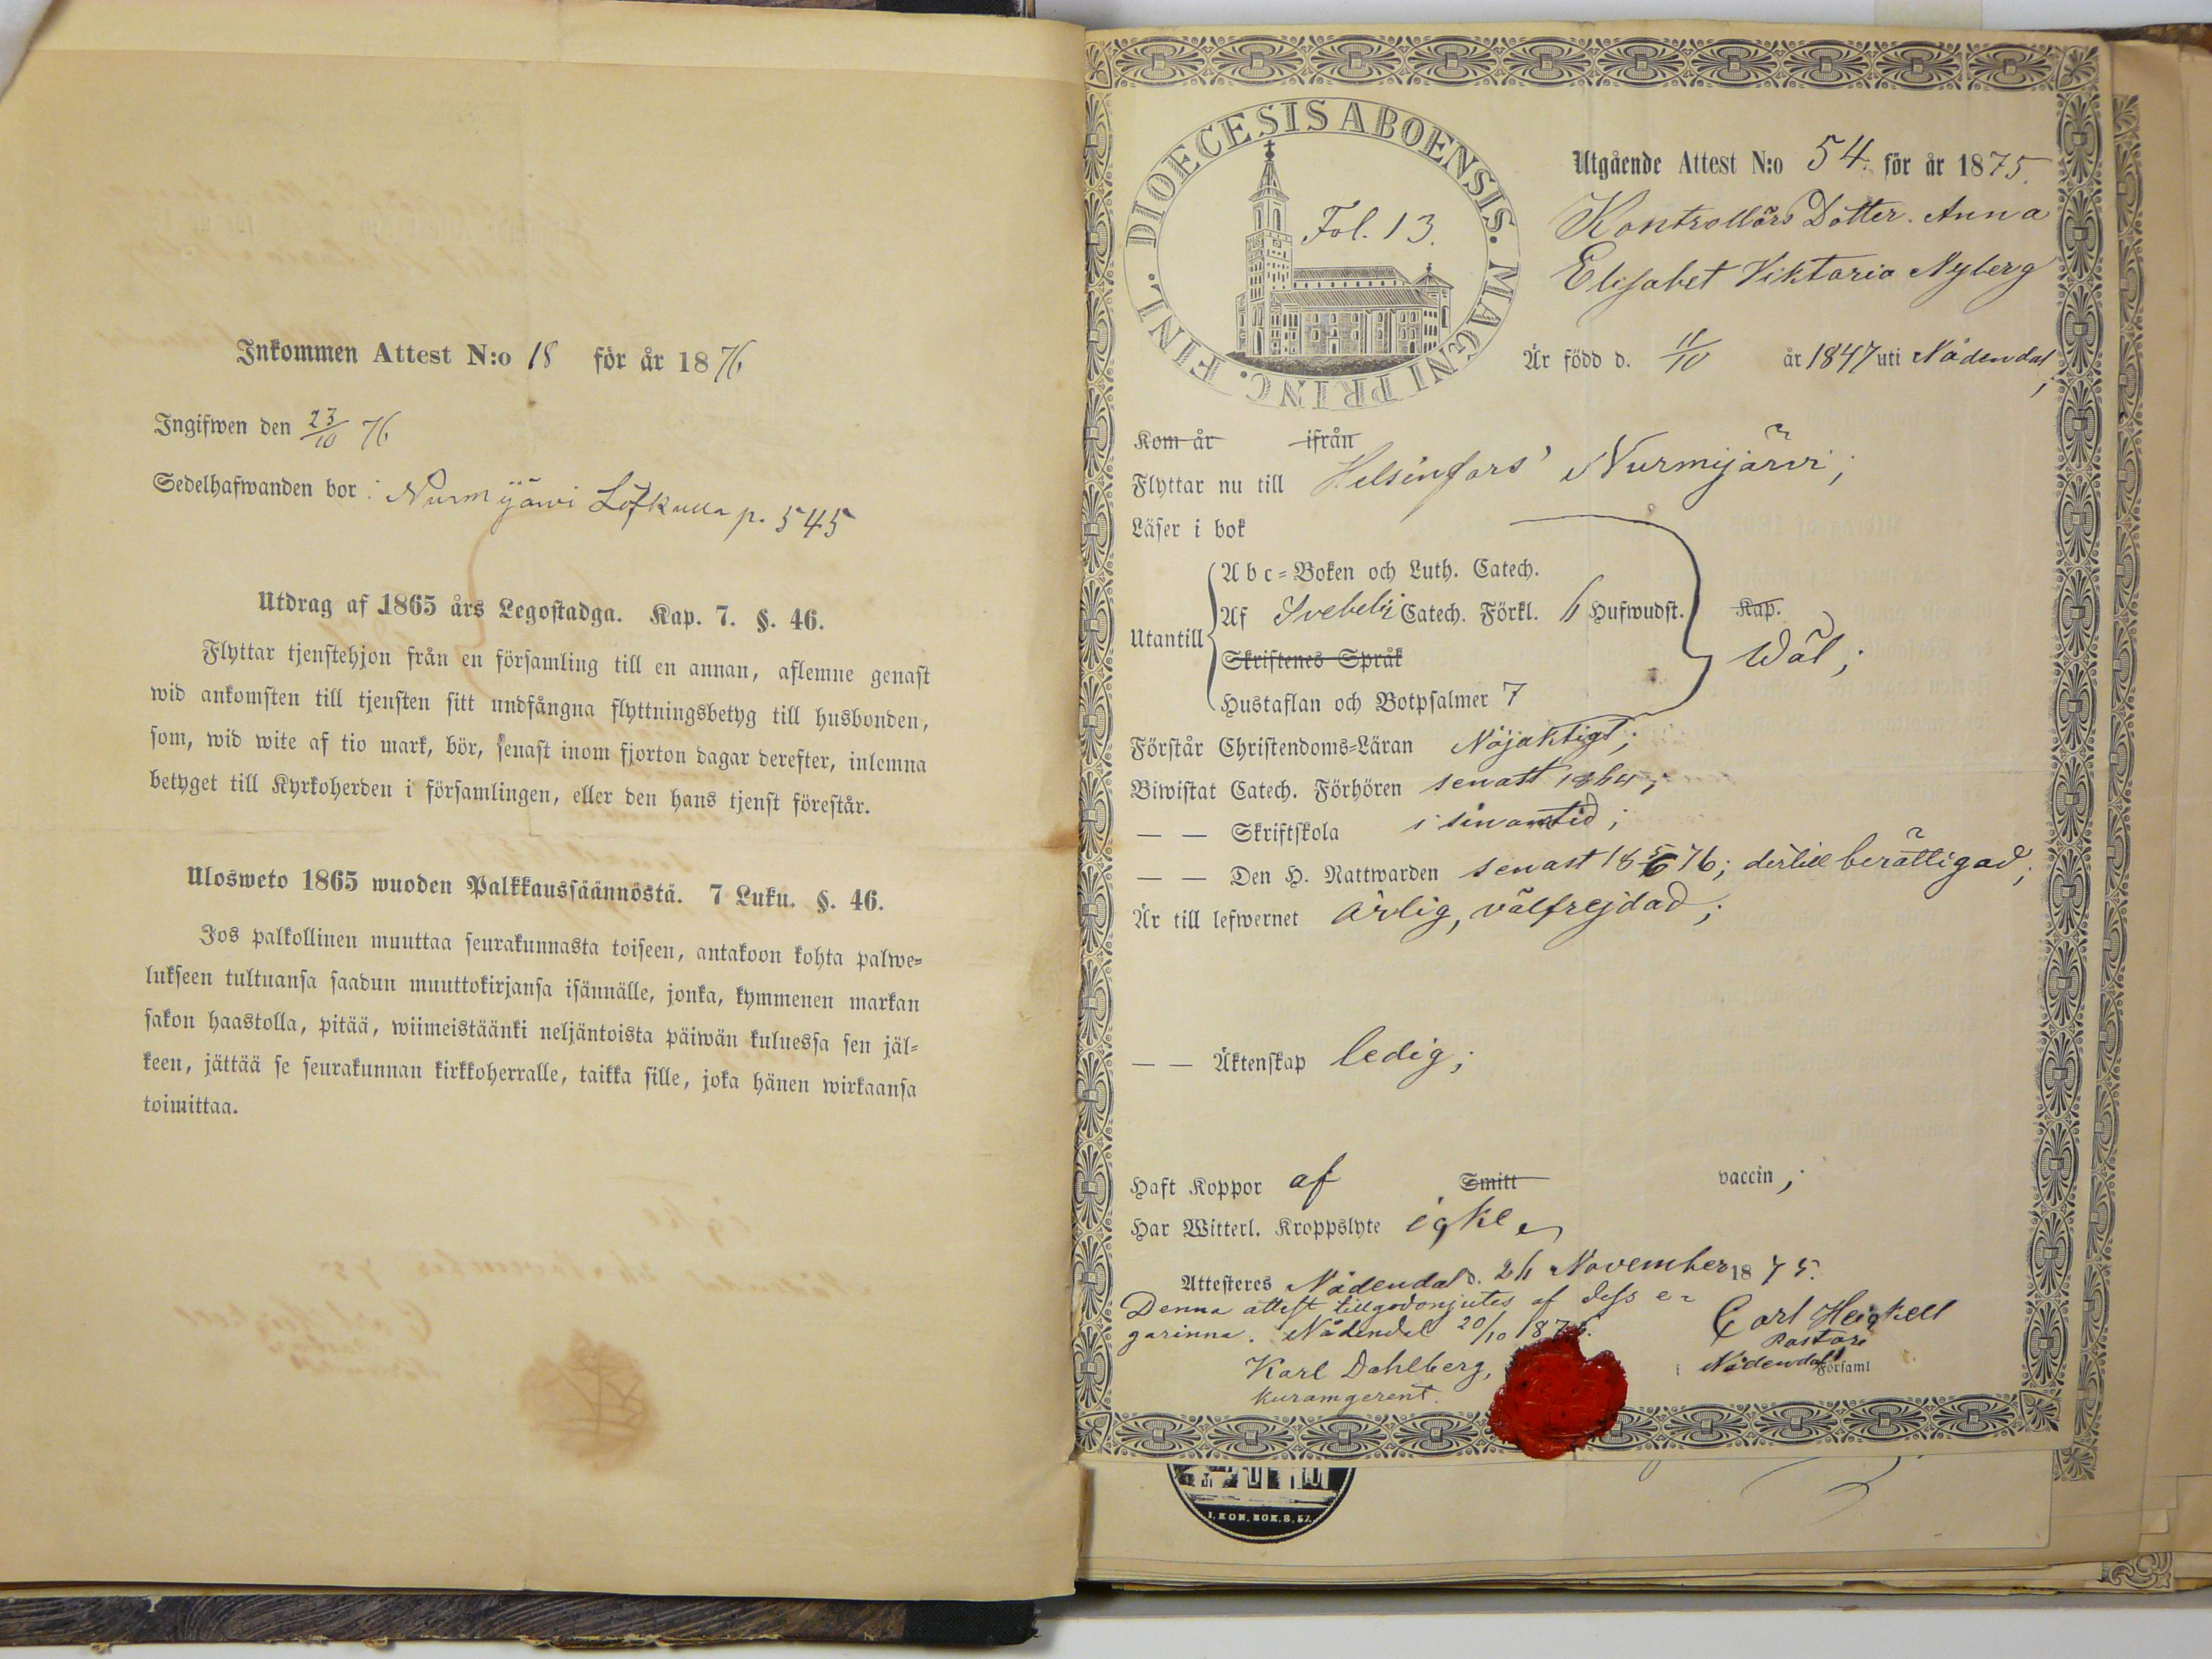 Inkommen Attest N:o 18 för år 1876
Ingifwen den 23/10 76
Sedelhafwanden bor i Nurmijärvi Löfkulla p. 545
Utdrag af 1865 års Legostadga. Kap. 7. §. 46.
Flyttar tjenstehjon från en församling till en annan, aflemne genast
wid ankomsten till tjensten sitt undfångna flyttningsbetyg till husbonden,
som, wid wite af tio mark, bör, senast inom fjorton dagar derefter, inlemna
betyget till Kyrkoherden i församlingen, eller den hans tjenst förestår.
Ulosweto 1865 wuoden Palkkaussäännöstä. 7 Luku. §. 46.
Jos palkollinen muuttaa seurakunnasta toiseen, antakoon kohta palwe=
lukseen tultuansa saadun muuttokirjansa isännälle, jonka, kymmenen markan
sakon haastolla, pitää, wiimeistäänki neljäntoista päiwän kuluessa sen jäl=
keen, jättää se seurakunnan kirkkoherralle, taikka sille, joka hänen wirkaansa
toimittaa.
DIOECESIS ABOENSIS. MAGNI PRINC. FINL.
Fol. 13.
Utgående Attest N:o 54. för år 1875.
Kontrollörs Dotter. Anna
Elisabet Viktoria Nyberg
Är född d. 11/10 år 1847 uti Nådendal;
Kom år ifrån
Flyttar nu till Helsingfors' Nurmijärvi;
Läser i bok
Utantill
A b c=Boken och Luth. Catech.
Af Svebelii Catech. Förkl. 6 Hufwudst. Kap.
Skriftenes Språk
Wäl;
Hustaflan och Botpsalmer 7
Förstår Christendoms=Läran Nöjaktigt;
Biwistat Catech. Förhören senast 1864;
— — Skriftskola i sinom tid;
— — Den H. Nattwarden senast 18 76; dertill berättigad;
Är till lefwernet ärlig, välfrejdad;
— — Äktenskap ledig;
Haft Koppor af Smitt vaccin;
Har Witterl. Kroppslyte icke
Attesteres Nådendal d. 26 November 1875.
Denna attest tillgodonjutes af dess e=
garinna. Nådendal 20/10 1876.
Karl Dahlberg,
Kuramgerent.
Carl Heickell
Pastor
i Nådendals Församl
I. KON. BOK. 8, 57.